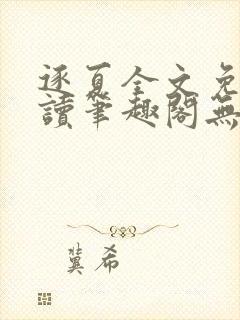 逐夏全文免
讀筆趣閣無
冀希